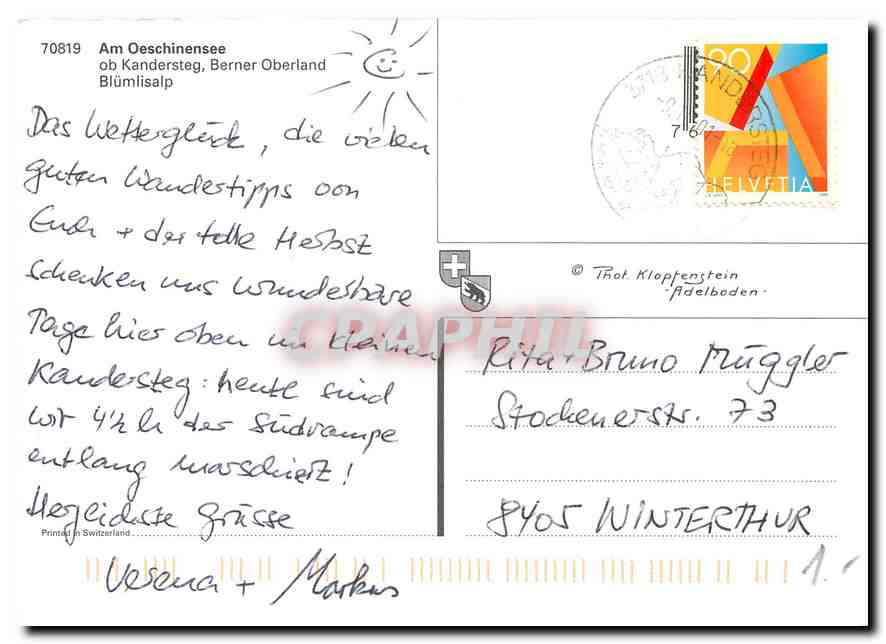 70819 Am Oeschinensee
ob Kandersteg, Berner Oberland
Blümlisalp
Das Wetterglück, die vielen
guten Wandertipps von
Euch + der tolle Herbst
schenken uns wunderbare
Tage hier oben im kleinen
Kandersteg: heute sind
wir 4½ h der Südrampe
entlang marschiert!
Herzlichste Grüsse
Verena + Markus
Printed in Switzerland
90
HELVETIA
3718 KANDERSTEG
© Phot. Klopfenstein
- Adelboden -
CPAPHIL
Rita + Bruno Müggler
Stockenerstr. 73
8405 WINTERTHUR
1.-